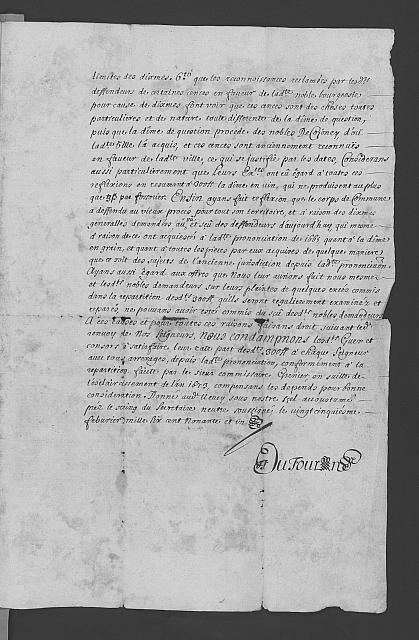 limites des dixmes, 6to que les reconnoissances reclamées par les dits
deffendeurs de certaines cences en faveur de ladte noble bourgeoisie
pour cause de dixmes font voir que ces cences sont des choses toutes
particulieres et de nature toute differente de la dîme de question,
puis que la dîme de question procede des nobles De d'ou
ladte Ville l'a acquis, et ces cences sont anciennement reconnues
en faveur de ladte ville, ce qui se justifie par les dates, Considerans
aussi particulierement que Leurs Exces ont eu égard à toutes ces
reflexions en reduisant à 300ff la dîme en vin, qui ne produisent au plus
que par fossorier. Enfin ayans fait reflexion que le corps de Commune
a deffendu au vieux procés pour tout son territoire, et à raison des dixmes
generalles demandées au nom et sçeu des deffendeurs d'aujourdhuy qui mesme
à raison de ce ont acquiescé à ladte prononciation de 1685 quant à la dîme
en grain, et quant à toutes les pieces par eux acquises de quelque maniere
que ce soit des safets de l'ancienne jurisdiction depuis ladte prononciation
Ayans aussi égard aux offres que Nous leur avions fait nous mesmes
et lesdts nobles demandeurs sur leurs pleintes de quelques excés commis
dans la repartition desdts 300ff quils seront regalierement examinéz et
reparéz, ne pouvans avoir estés commis du sçeu desdts nobles demandeurs.
A ces causes et pour toutes ces raisons faisans droit, suivant led
renvoy de Nos Seigneurs, Nous condampnons lesdts Guer et
consors à satisfaire leur cote part desdts 300ff à chaque Seigneur
avec tous arrerages, depuis ladte prononciation, conformément à la
repartition faicte par le sieur commissaire Grenier en suitte de
l'esclaircissement de l'an 1673, compensans les depends pour bonne
consideration. Donné audt Vevey sous nostre séel accoustumé
prez le seing du Secretaire nostre soussigné le vingt cinquiesme
feburier mille six cent nonante et un
DuFour